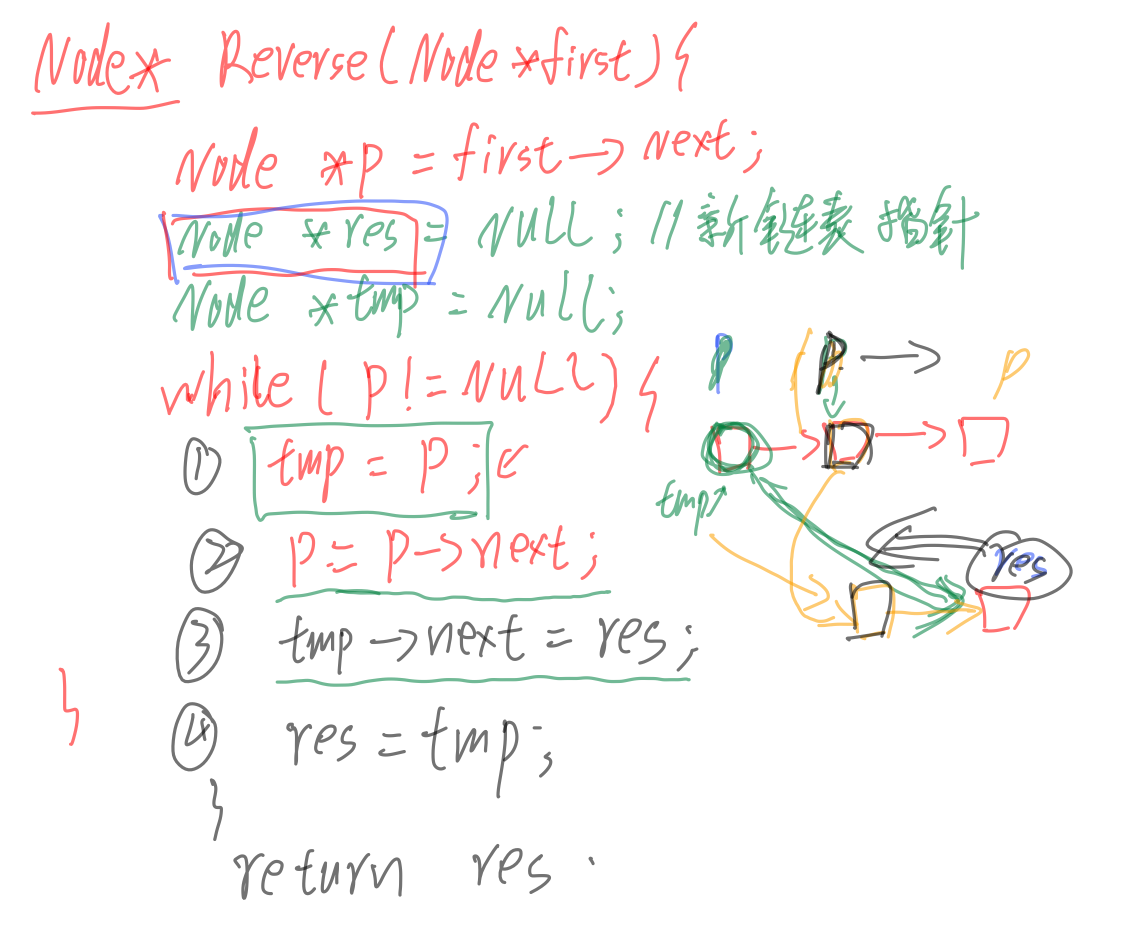 Node* Reverse(Node *first){
Node *p = first→next;
Node *res = NULL; //新链表指针
Node *tmp = NULL;
while(p!=NULL){
① tmp = p;
② p = p→next;
③ tmp→next = res;
④ res = tmp;
}
return res.
}
p p p
tmp
res